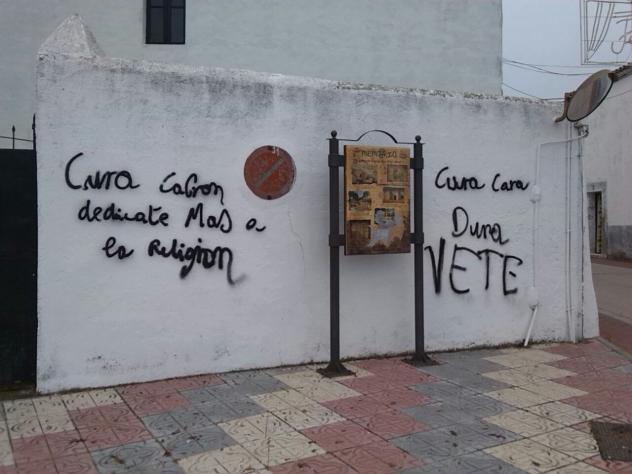 Cura CaGron
dedicate MaS a
la ReligIon
Cura Cara
Dura
VETE